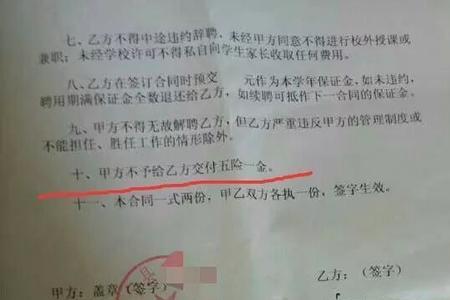 七、乙方不得中途违约辞聘，未经甲方同意不得进行校外授课或
兼职；未经学校许可不得私自向学生家长收取任何费用。
八、乙方在签订合同时预交 元作为本学年保证金，如未违约，
聘用期满保证金全数退还给乙方，如续聘可抵作下一合同的保证金。
九、甲方不得无故解聘乙方，但乙方严重违反甲方的管理制度或
不能担任、胜任工作的情形除外。
十、甲方不予给乙方交付五险一金。
十一、本合同一式两份，甲乙双方各执一份，签字生效。
甲方：盖章（签字） 乙方：（签字）